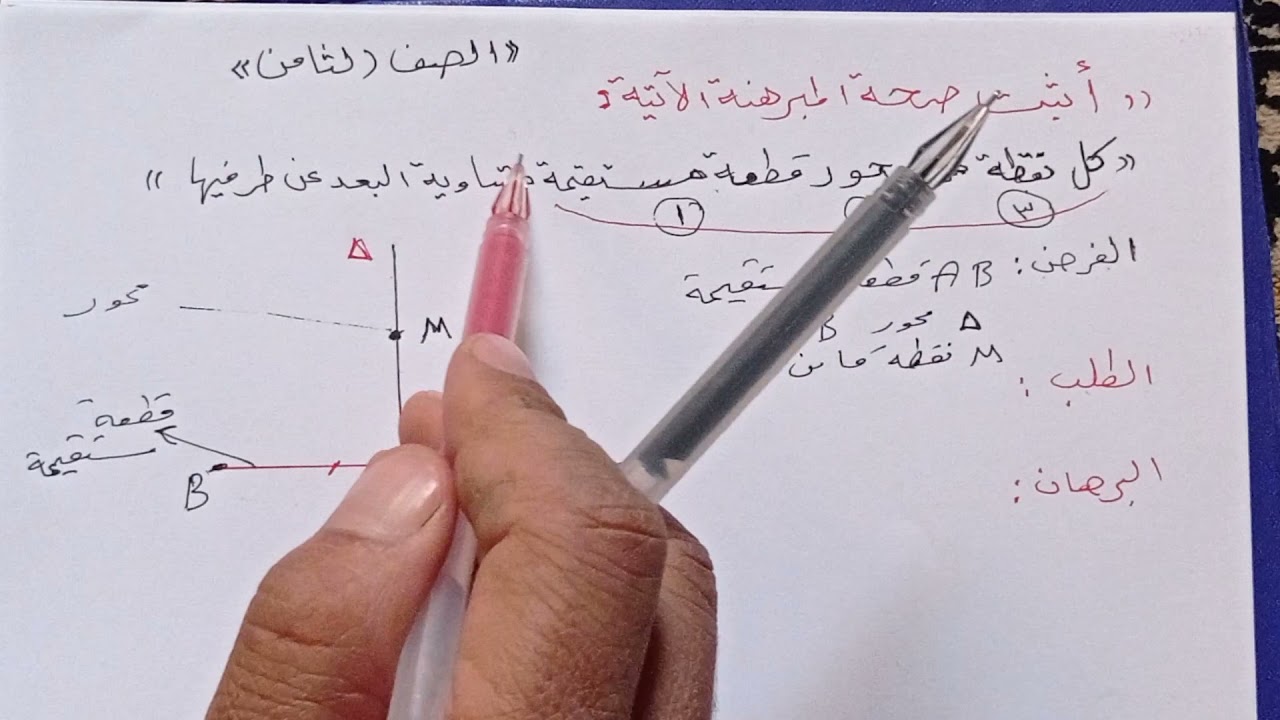 «الصف الثامن»
,, أثبت صحة المبرهنة الآتية:
«كل نقطة محور قطعة مستقيمة متساوية البعد عن طرفيها»
١ ٣
الفرض: AB مستقيمة
Δ محور B
M نقطة ما من
الطلب:
البرهان:
Δ
محور
M
قطعة
مستقيمة
B